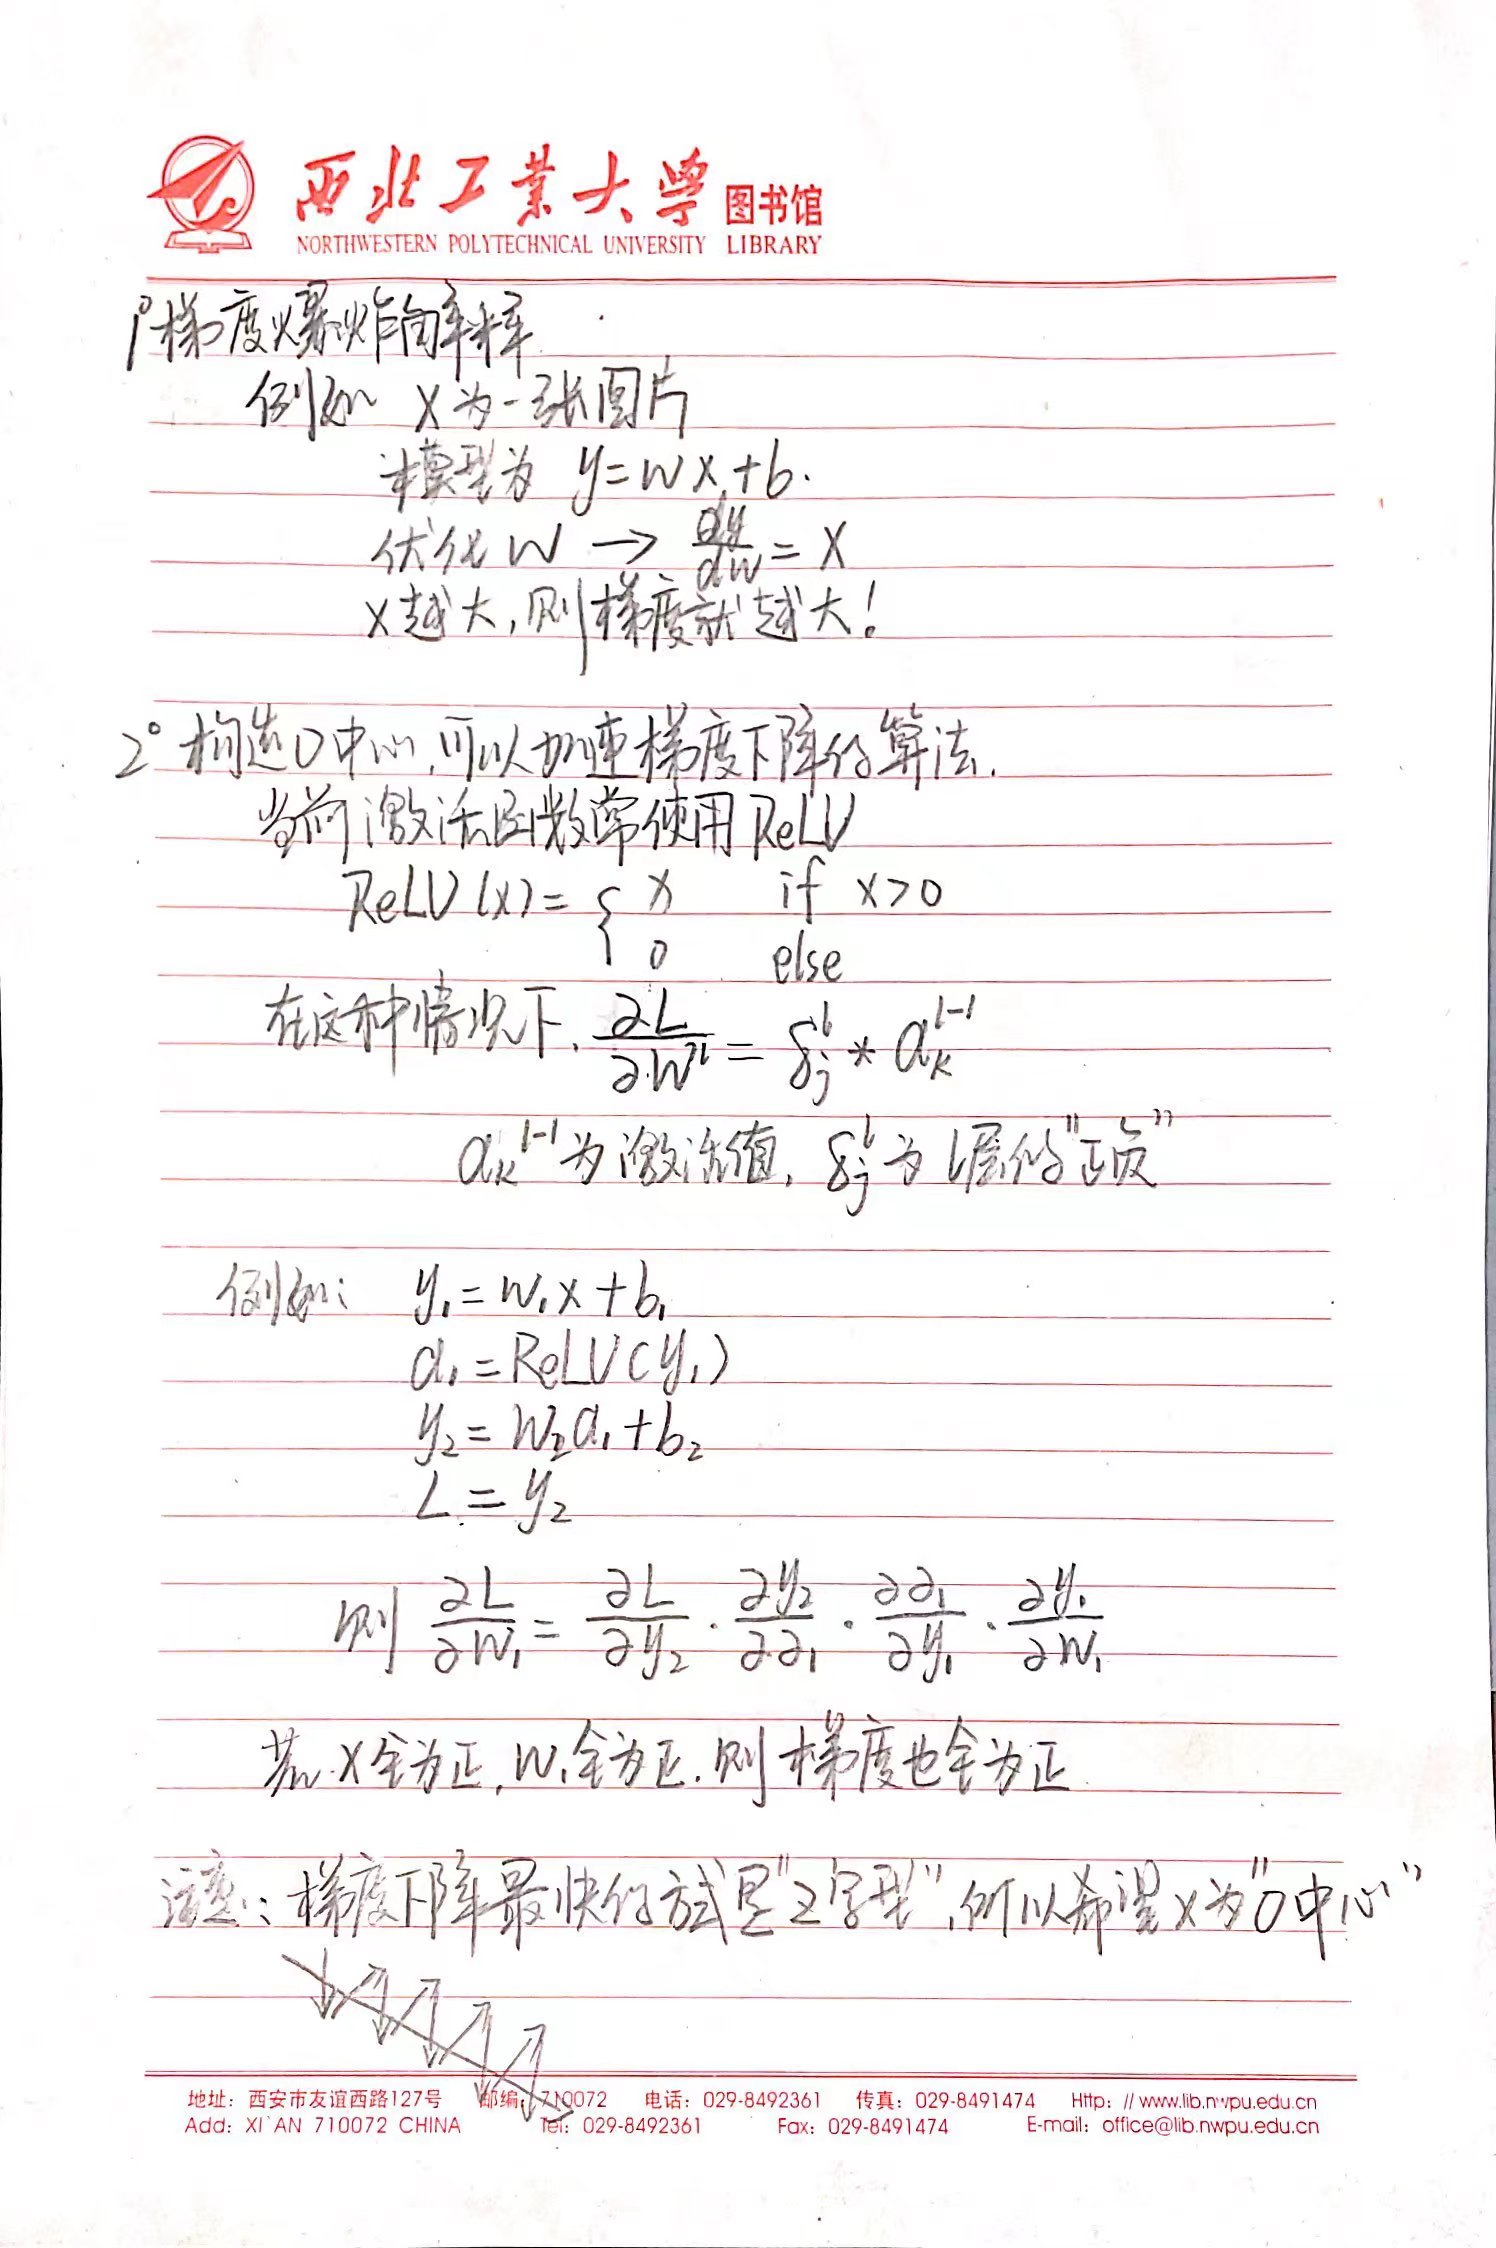 西北工业大学 图书馆
NORTHWESTERN POLYTECHNICAL UNIVERSITY LIBRARY
1° 梯度爆炸的解释
例如 X为一张图片
模型为 y=wx+b.
优化W → dy/dw = X
X越大,则梯度就越大!
2° 构造0中心,可以加速梯度下降的算法.
当前激活函数常使用ReLU
ReLU(x)= { x if x>0
0 else
在这种情况下, ∂L/∂W^l = δ_j^l * a_k^{l-1}
a_k^{l-1}为激活值, δ_j^l为l层的"正负"
例如: y₁=w₁x+b₁
a₁=ReLU(y₁)
y₂=W₂a₁+b₂
L=y₂
则 ∂L/∂W₁ = ∂L/∂y₂ · ∂y₂/∂a₁ · ∂a₁/∂y₁ · ∂y₁/∂W₁
若X全为正,W₁全为正.则梯度也全为正
注意:梯度下降最快的方式是"Z字型",所以希望X为"0中心"
地址:西安市友谊西路127号 邮编:710072 电话:029-8492361 传真:029-8491474 Http://www.lib.nwpu.edu.cn
Add: XI'AN 710072 CHINA Tel: 029-8492361 Fax: 029-8491474 E-mail: office@lib.nwpu.edu.cn